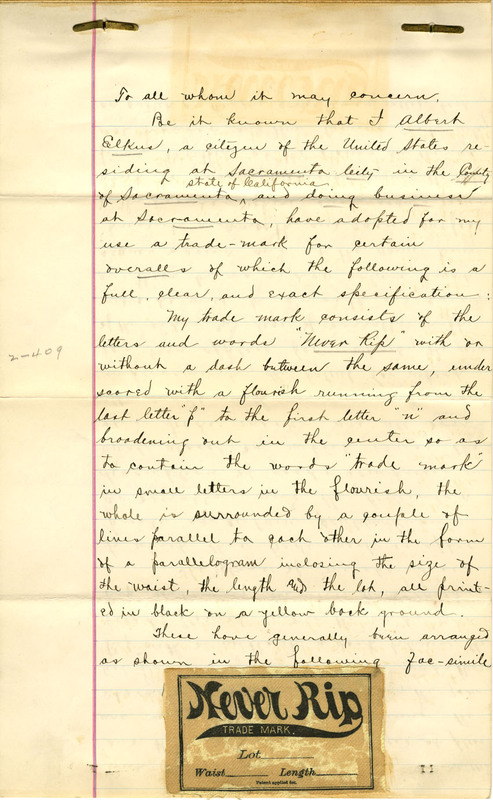 To all whom it may concern.
Be it known that I Albert
Elkus, a citizen of the United States re-
siding at Sacramento City in the County
state of California
of Sacramento, and doing business
at Sacramento, have adopted for my
use a trade-mark for certain
overalls of which the following is a
full, clear, and exact specification:
My trade mark consists of the
letters and words "Never Rip" with or
2-409
without a dash between the same, under
scored with a flourish running from the
last letter "p" to the first letter "n" and
broadening out in the center so as
to contain the words "trade mark"
in small letters in the flourish, the
whole is surrounded by a couple of
lines parallel to each other in the form
of a parallelogram inclosing the size of
the waist, the length and the lot, all print-
ed in black on a yellow back ground.
These have generally been arranged
as shown in the following fac-simile
Never Rip
TRADE MARK.
Lot
Waist Length
Patent applied for.